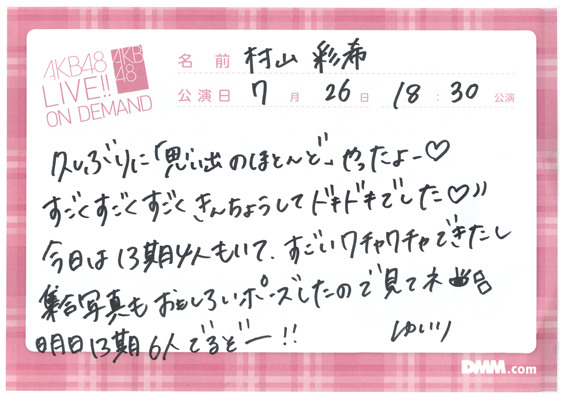 AKB48
LIVE!!
ON DEMAND
AKB
48
名前 村山 彩希
公演日 7月26日 18:30公演
久しぶりに「思い出のほとんど」やったよー♡
すごくすごくすごくきんちょうしてドキドキでした♡〃
今日は13期4人もいて、すごいワチャワチャできたし
集合写真もおもしろいポーズしたので見てネ
明日13期6人でるぞー!!
ゆいり
DMM.com